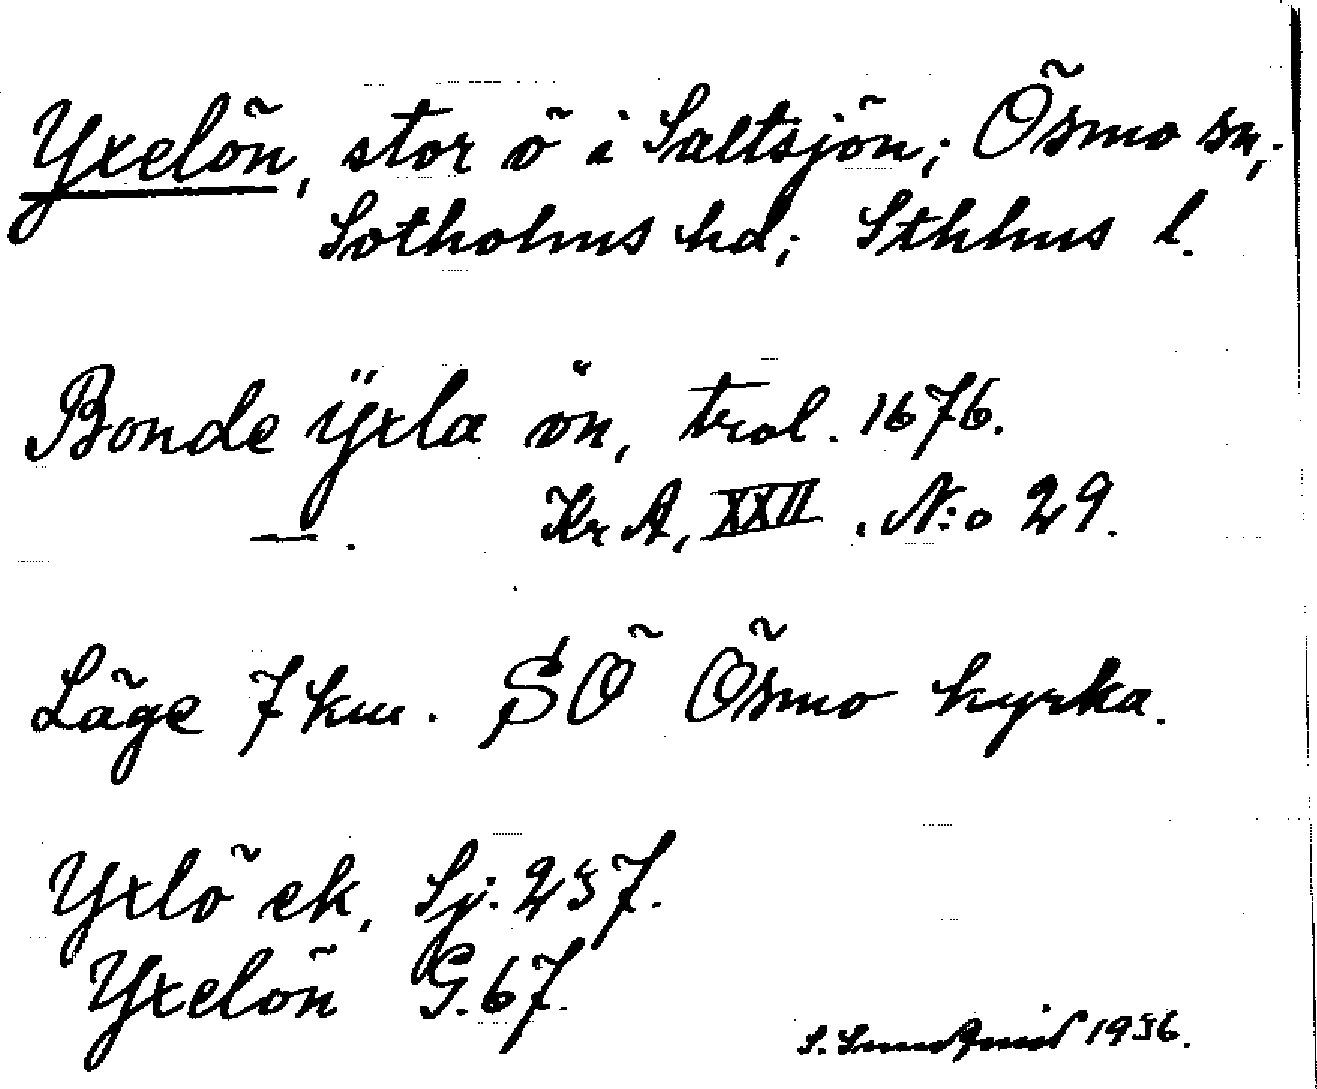 Yxelön, stor ö i Saltsjön; Ösmo sn;
Sotholms hd; Sthlms l.
Bonde Ÿxla ön, trol. 1676.
—. Kr A, XXII. N:o 29.
Läge 7 km. SÖ Ösmo kyrka.
Yxlö ek, Sj. 257.
Yxelön G. 67.
S. 1936.